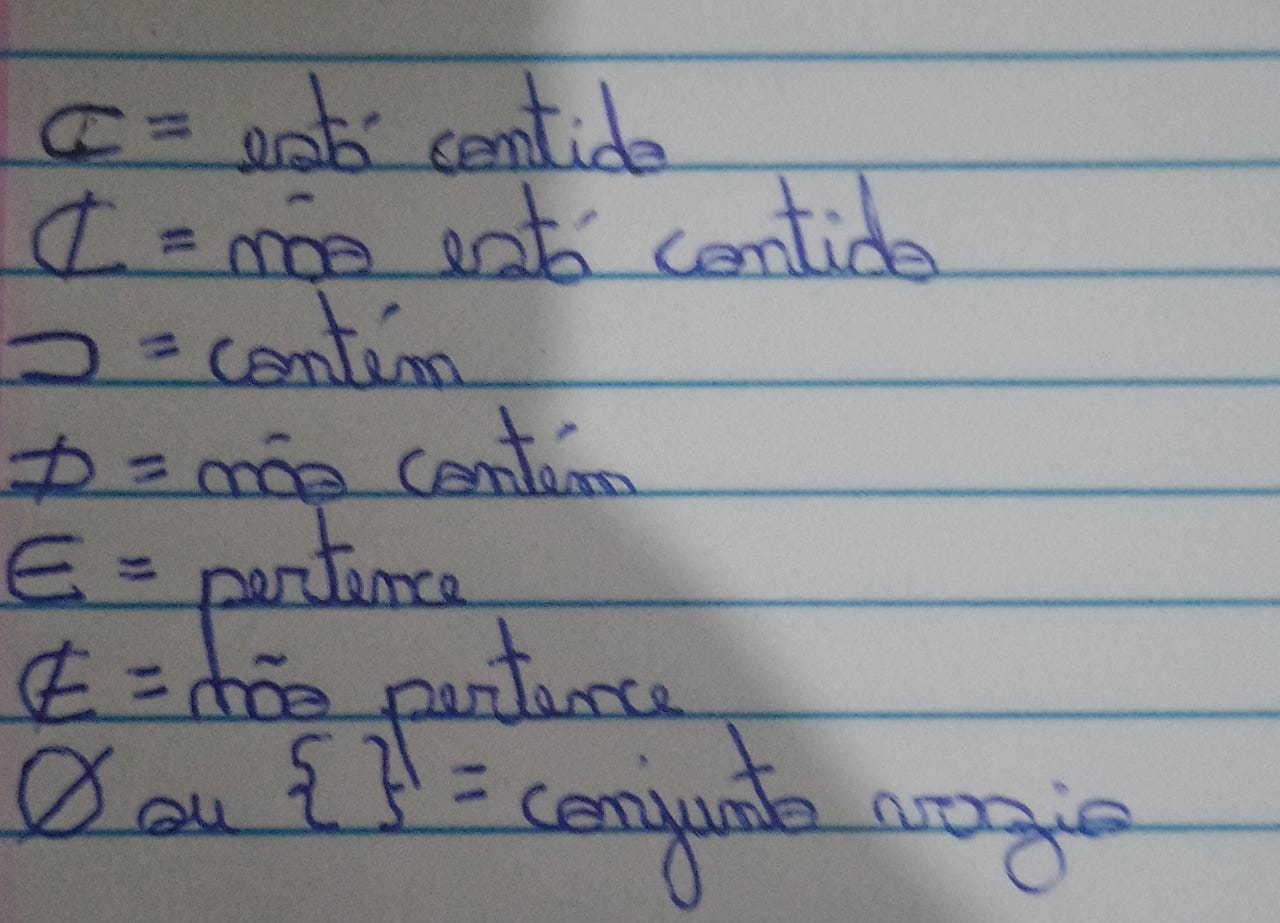 ⊂ = está contido
⊄ = não está contido
⊃ = contém
⊅ = não contém
∈ = pertence
∉ = não pertence
∅ ou { } = conjunto vazio